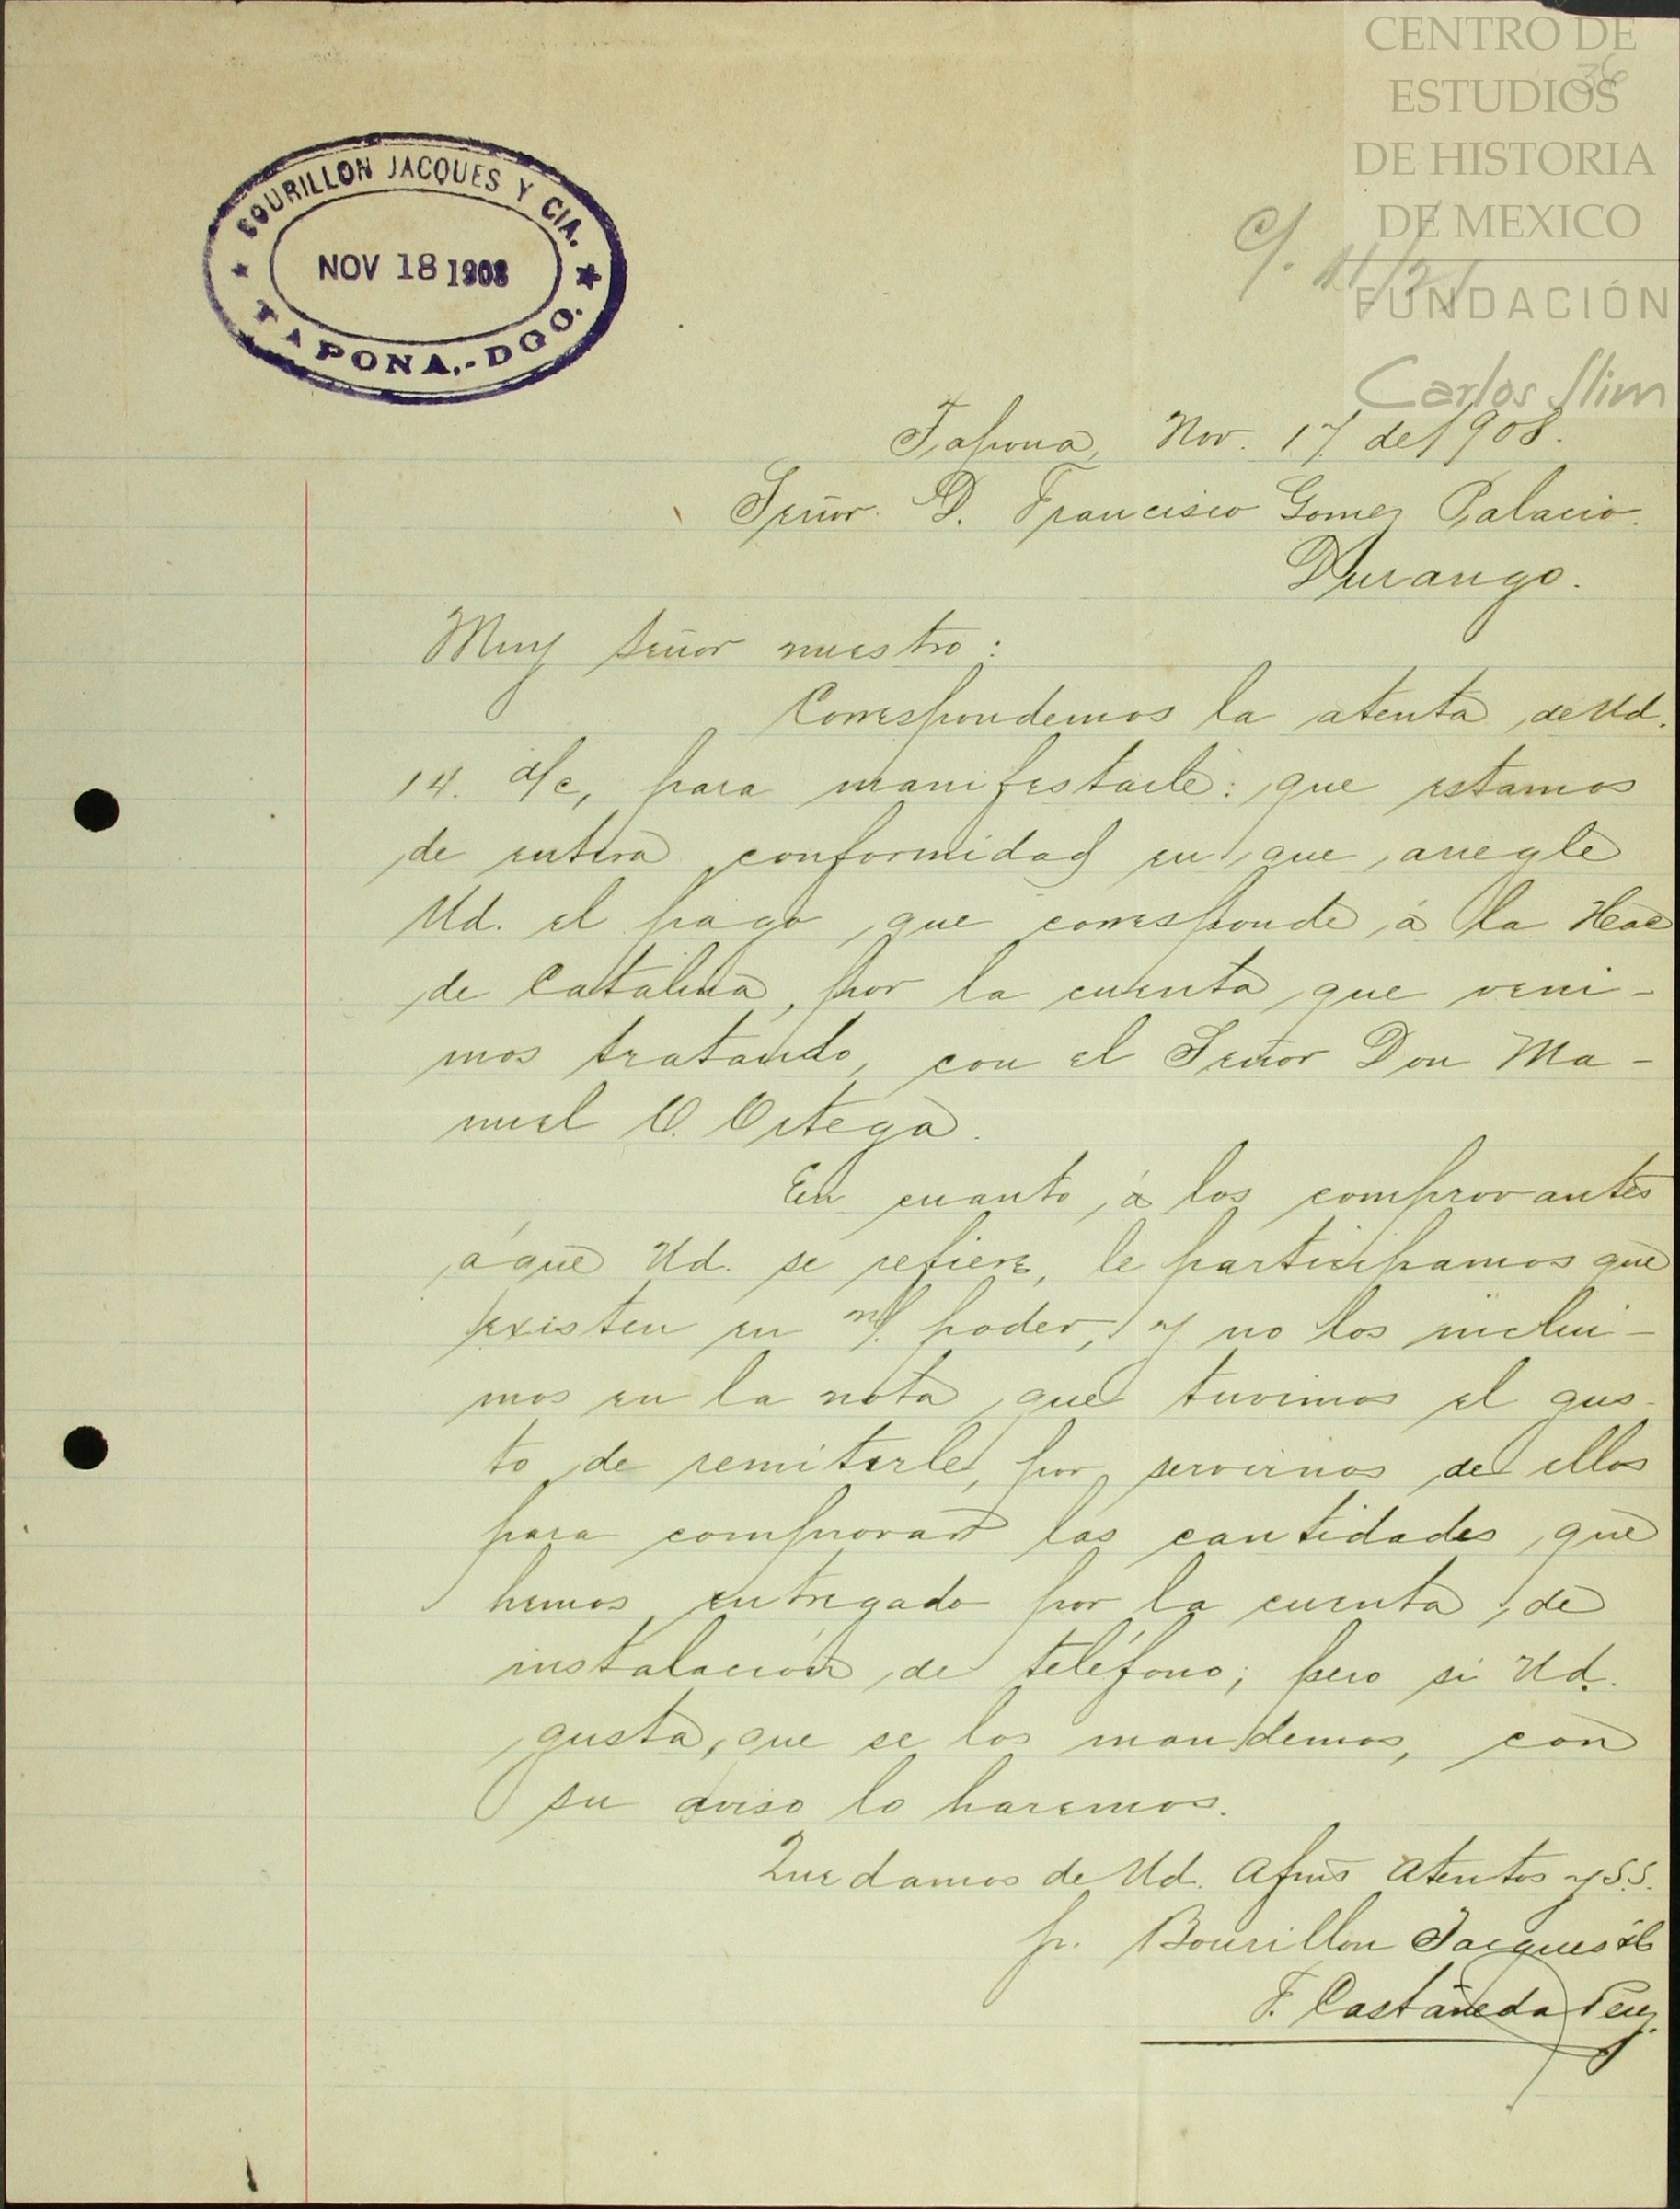 CENTRO DE
ESTUDIOS
DE HISTORIA
DE MEXICO
FUNDACIÓN
Carlos Slim
36
BOURILLON JACQUES Y CIA.
NOV 18 1908
TAPONA,-DGO.
Tapona, Nov. 17 de 1908.
Señor D. Francisco Gomez Palacio.
Durango.
Muy señor nuestro:
Correspondemos la atenta de Ud.
14. d/c, para manifestarle: que estamos
de entera conformidad en que arregle
Ud. el pago que corresponde á la Hac
de Catalina, por la cuenta que veni-
mos tratando, con el Señor Don Ma-
nuel O. Ortega.
En cuanto, á los comprovantes
á que Ud. se refiere, le participamos que
existen en n/. poder, y no los inclui-
mos en la nota que tuvimos el gus-
to de remitirle, por servirnos de ellos
para comprovar las cantidades que
hemos entregado por la cuenta de
instalación de teléfono; pero si Ud.
gusta, que se los mandemos, con
su aviso lo haremos.
Quedamos de Ud. afmos atentos y S.S.
p. Bourillon Jacques
F. Castañeda